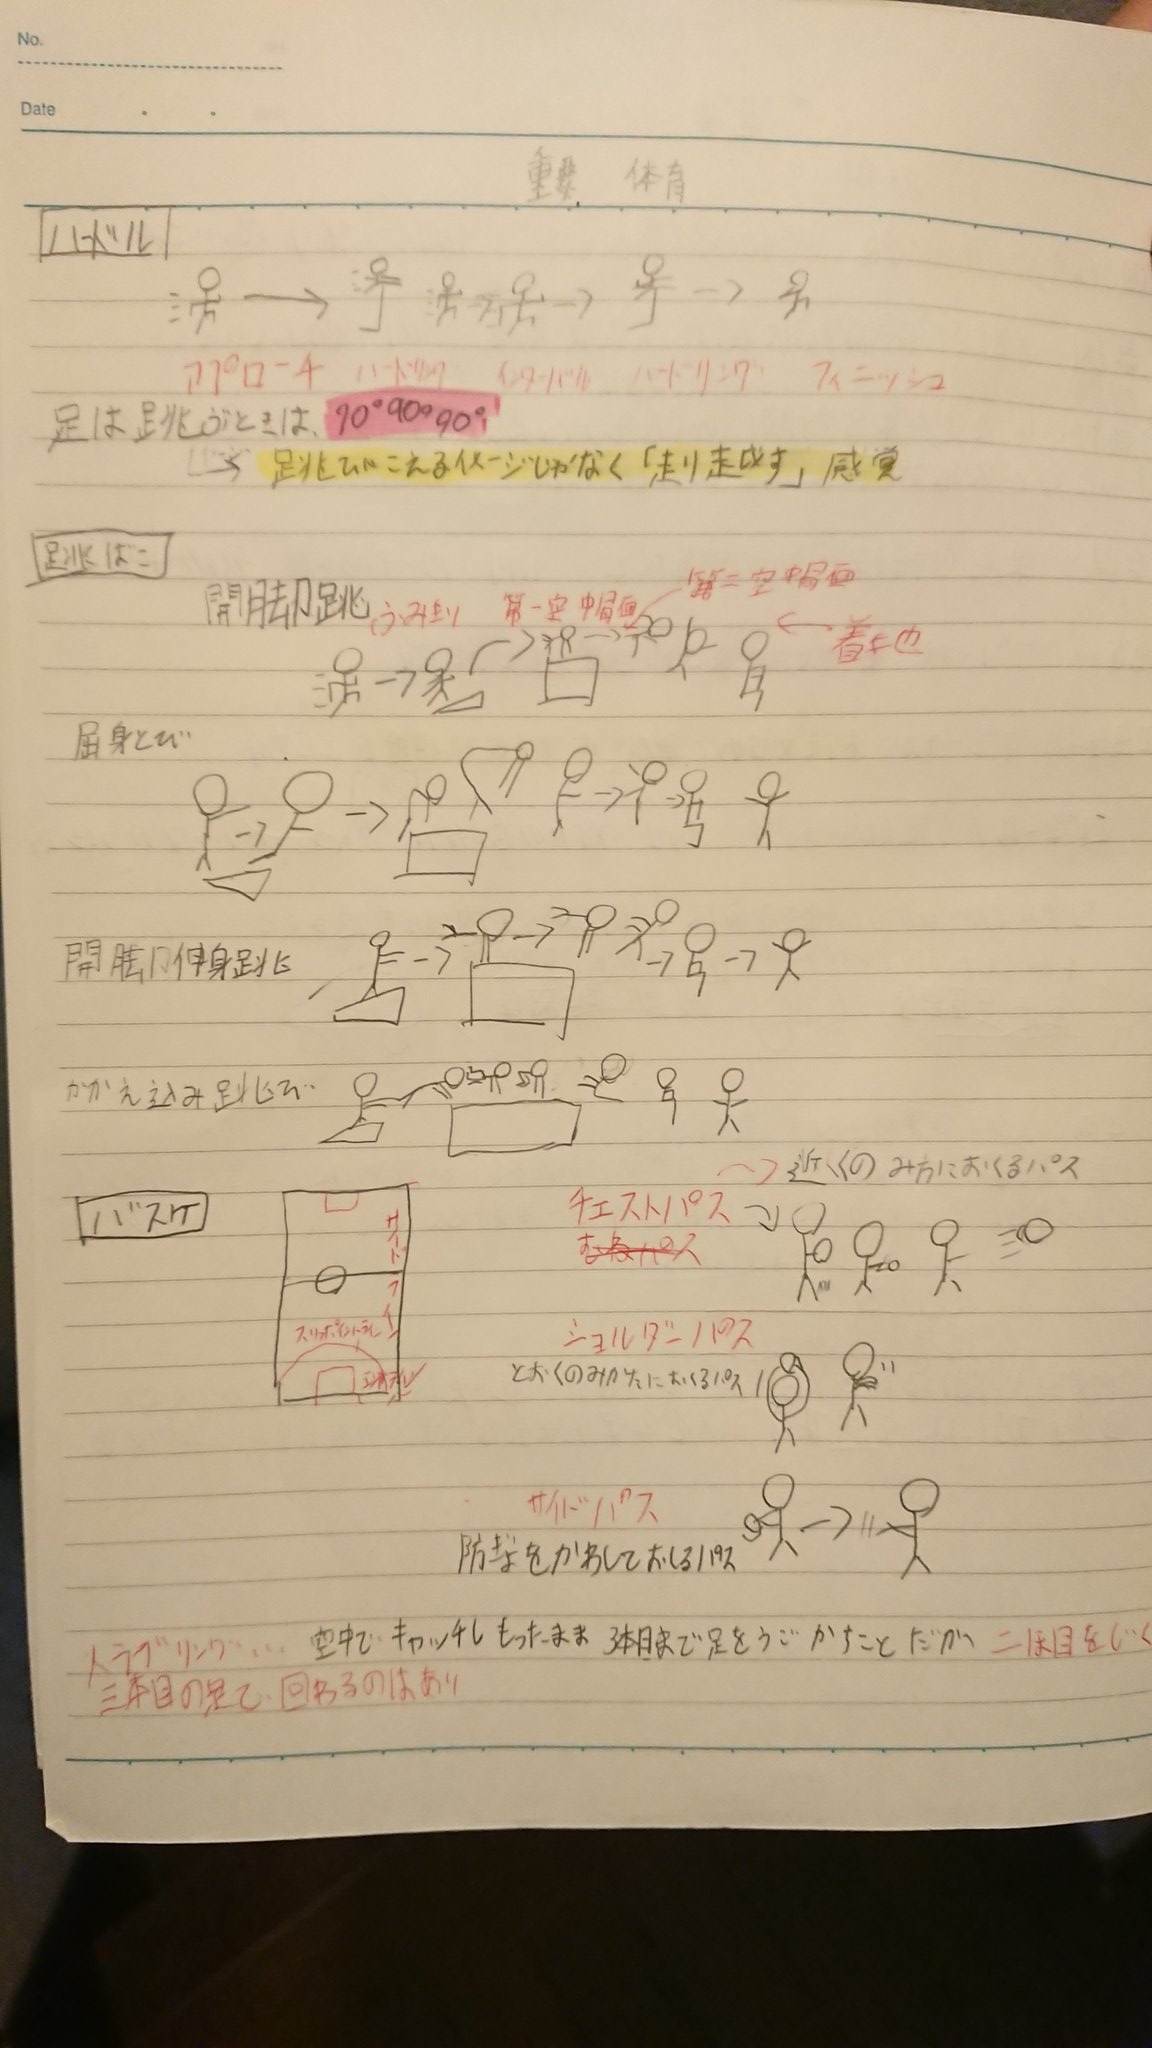 No.
Date
重要 体育
ハードル
アプローチ ハードリング インターバル ハードリング フィニッシュ
足は跳ぶときは、90°90°90°!
跳びこえるイメージじゃなく「走り走成す」感覚
跳ばこ
開脚跳
ふみ切り 第一空中局面 第二空中局面
着地
屈身とび
開脚伸身跳
かかえ込み跳び
バスケ
サイドライン
スリーポイントライン
チェストパス
近くのみ方におくるパス
むねパス
ショルダーパス
とおくのみかたにおくるパス
サイドパス
防ぎをかわしておくるパス
トラブリング… 空中でキャッチしもったまま3本目まで足をうごかすことだが 二ほ目をじく
三本目の足で回わるのはあり